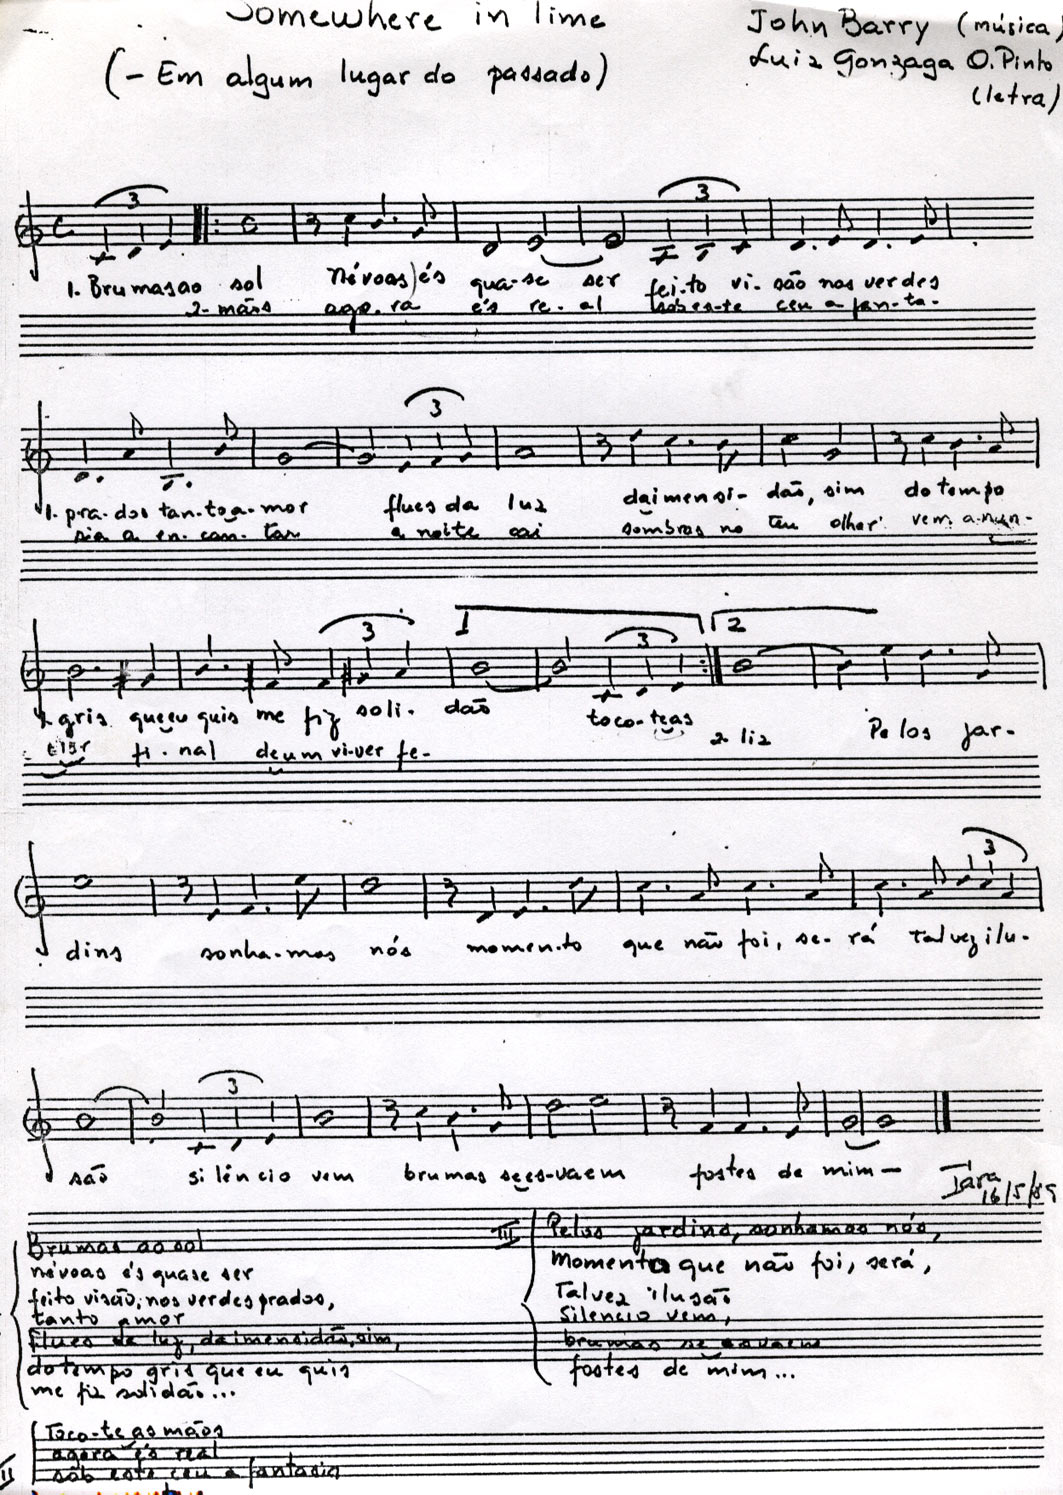 Somewhere in time
(- Em algum lugar do passado)
John Barry (música)
Luiz Gonzaga O. Pinto
(letra)
3
3
1. Brumas ao sol Névoas) és qua-se ser fei-to vi-são nos verdes
2- mãos ago-ra és re-al sob es-te ceu a fan-ta-
3
1. pra-dos tan-to a-mor flues da luz da imensi-dão, sim do tempo
sia a en-can-tar a noite cai sombras no teu olhar vem a-nun-
3 1 3 2
1. gris que eu quis me fiz soli-dão toco-te as
ciar fi-nal de um vi-ver fe- 2- liz Pelos jar-
3
dins sonha-mos nós momen-to que não foi, se-rá talvez ilu-
3
são silêncio vem brumas se es-vaem fostes de mim—
Iára
16/5/89
Brumas ao sol
névoas és quase ser
feito visão, nos verdes prados,
tanto amor
flues da luz, da imensidão, sim,
do tempo gris que eu quis
me fiz solidão...
III Pelos jardins, sonhamos nós,
Momento que não foi, será,
Talvez ilusão
Silencio vem,
brumas se esvaem
fostes de mim...
II Toco-te as mãos
agora és real
sob este ceu a fantasia